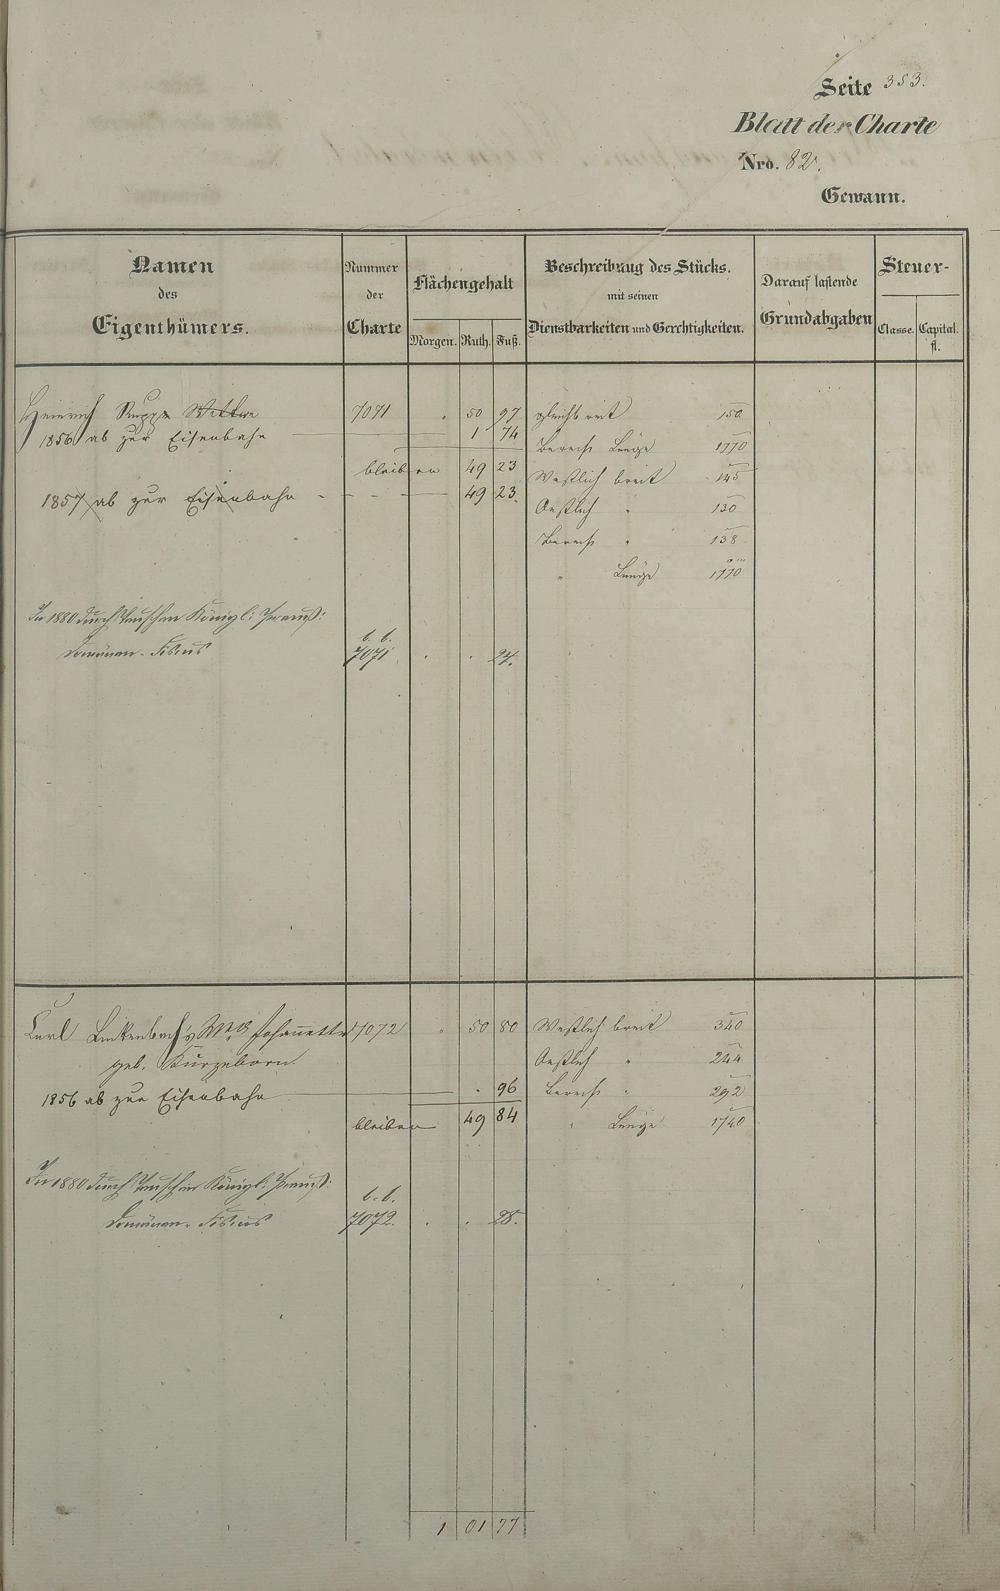 Seite 353.
Blatt der Charte
Nro. 82.
Gewann.
Namen
des
Eigenthümers.
Nummer
der
Charte
Flächengehalt
Morgen. Ruth. Fuß.
Beschreibung des Stücks.
mit seinen
Dienstbarkeiten und Gerechtigkeiten.
Darauf lastende
Grundabgaben
Steuer-
Classe. Capital.
fl.
Heinrich Rupp Wittwe 7071 50 97 gleichbreit 150
1856 ab zur Eisenbahn 1 74 Berech Länge 1770
bleiben 49 23 Westlich breit 145
1857 ab zur Eisenbahn 49 23. Oestlich " 130
Berech " 138
" Länge 1770
In 1880 durch Tauschen Königl: Preuß:
Domänen-Fiskus b. b. 7071 . . 24.
Carl Linkenbach's Wtb Johannette 7072 " 50 80 Westlich breit 340
geb. Kurzeborn Oestlich " 244
1856 ab zur Eisenbahn . 96 Berech " 292
bleiben 49 84 " Länge 1740
In 1880 durch Tauschen Königl: Preuß:
Domänen-Fiskus b. b. 7072. . . 28.
1 01 77